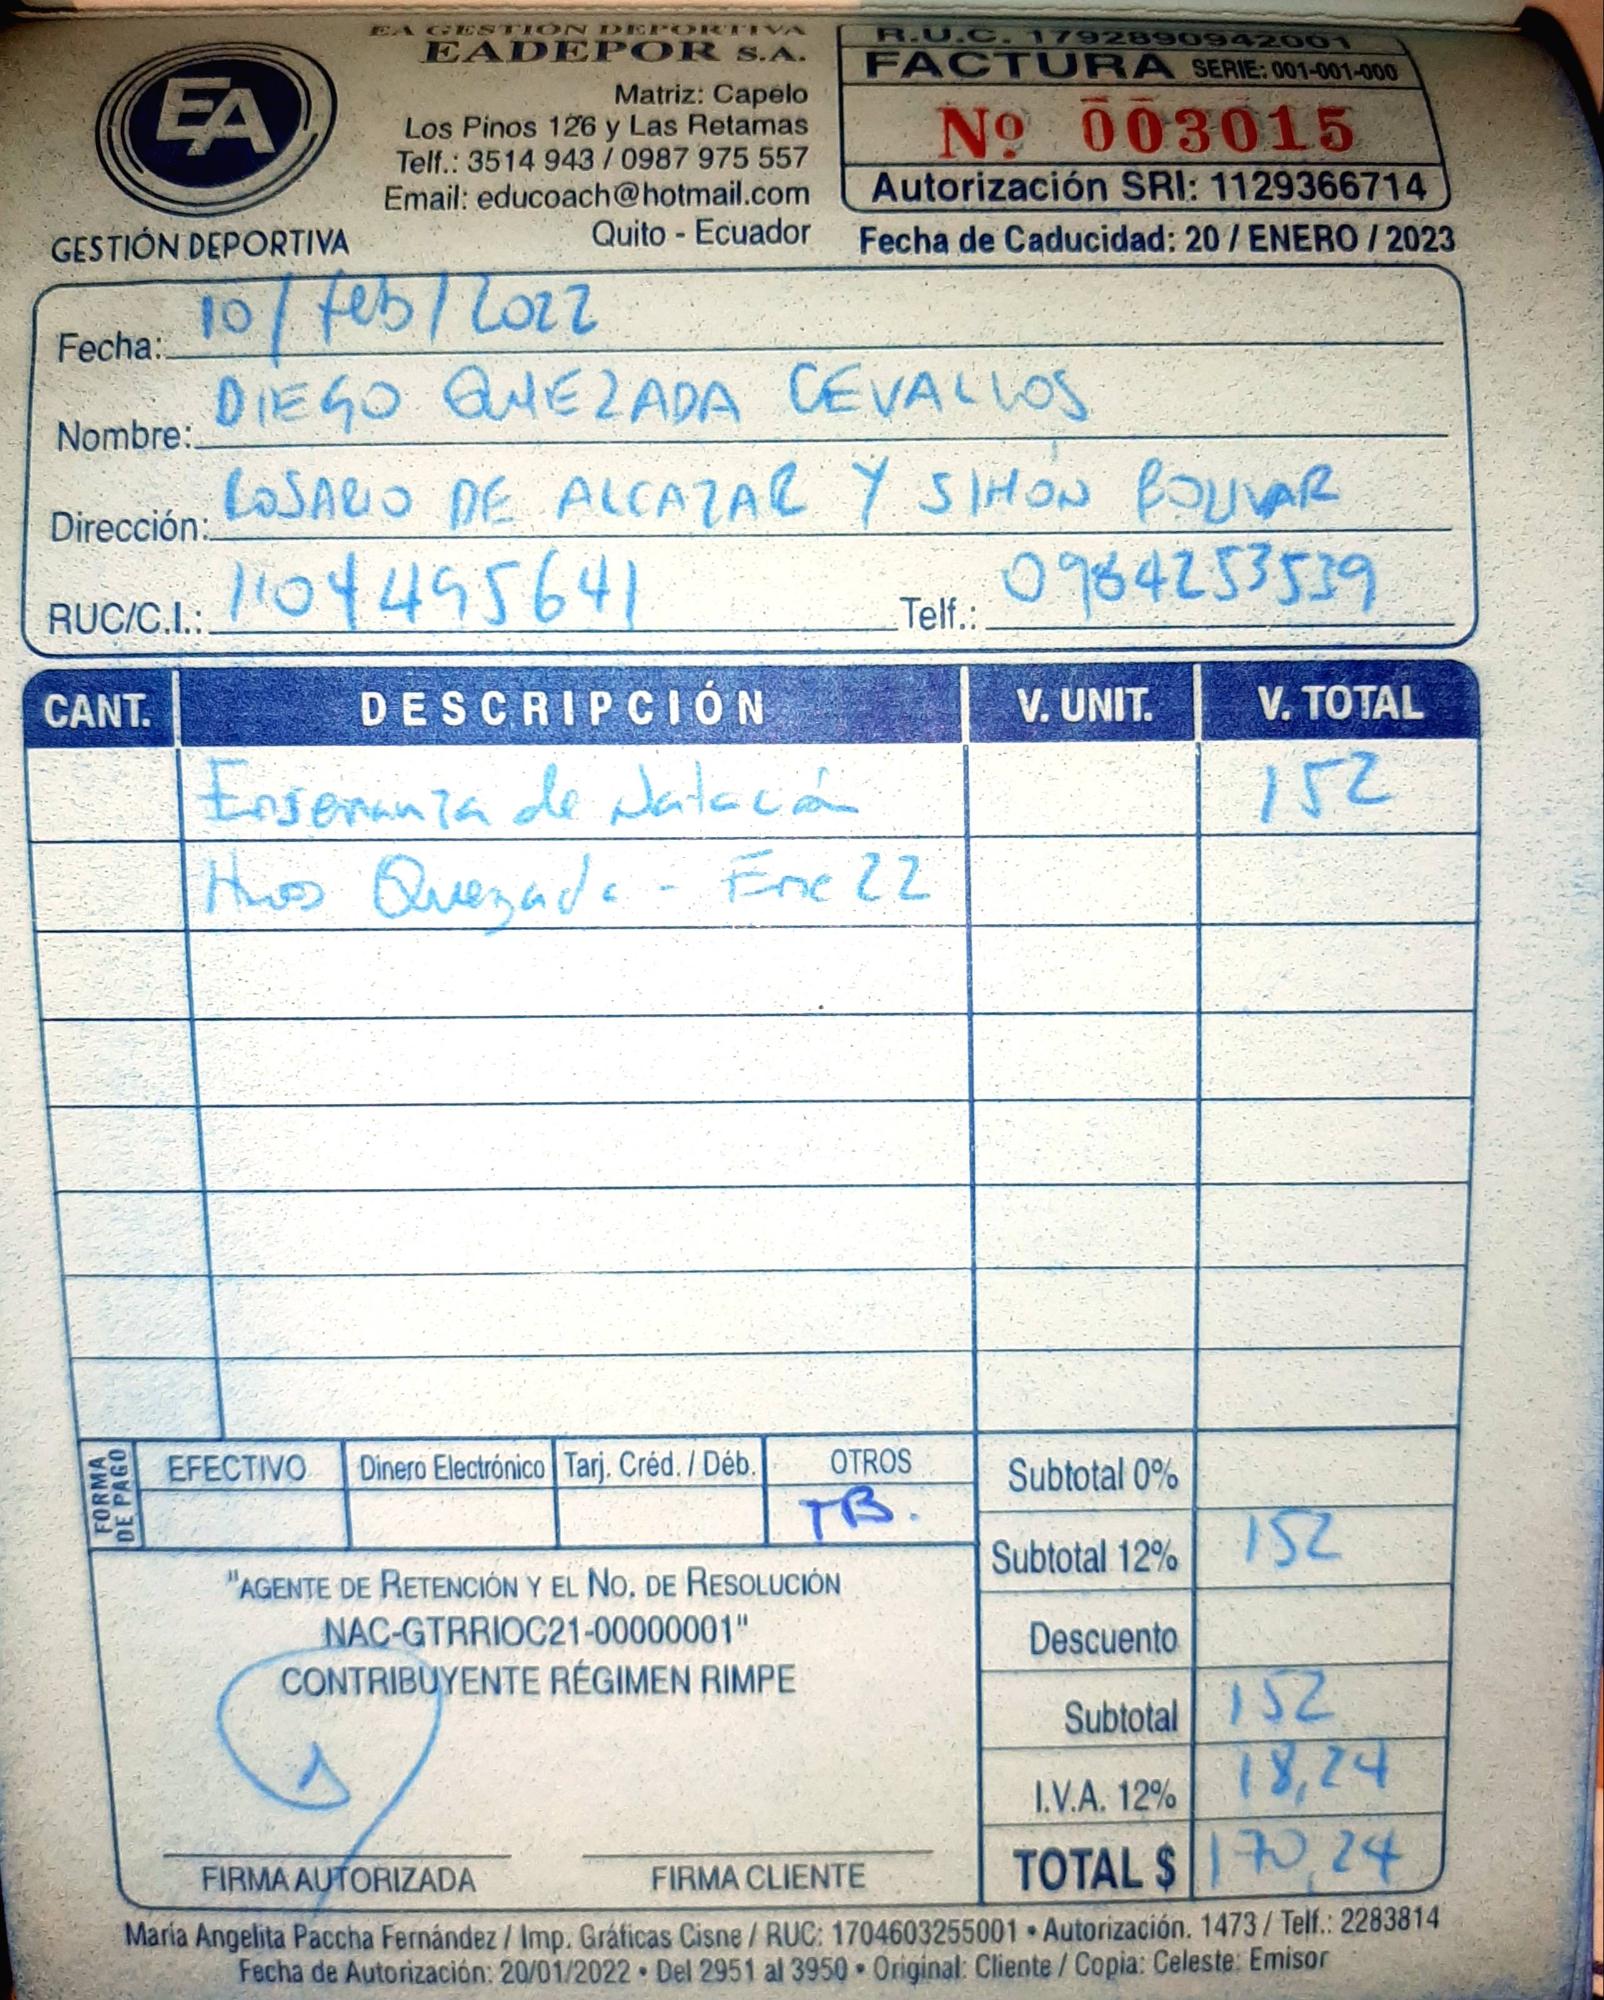 EA GESTIÓN DEPORTIVA
EADEPOR S.A.
Matriz: Capelo
Los Pinos 126 y Las Retamas
Telf.: 3514 943 / 0987 975 557
Email: educoach@hotmail.com
Quito - Ecuador
EA
GESTIÓN DEPORTIVA
R.U.C. 1792890942001
FACTURA SERIE: 001-001-000
Nº 003015
Autorización SRI: 1129366714
Fecha de Caducidad: 20 / ENERO / 2023
Fecha: 10/feb/2022
Nombre: DIEGO QUEZADA CEVALLOS
Dirección: ROSARIO DE ALCAZAR Y SIMÓN BOLIVAR
RUC/C.I.: 1104495641 Telf.: 0984253539
CANT. DESCRIPCIÓN V. UNIT. V. TOTAL
Enseñanza de Natación 152
Hnos Quezada - Ene 22
FORMA DE PAGO EFECTIVO Dinero Electrónico Tarj. Créd. / Déb. OTROS
TB.
Subtotal 0%
Subtotal 12% 152
Descuento
Subtotal 152
I.V.A. 12% 18,24
TOTAL $ 170,24
"AGENTE DE RETENCIÓN Y EL NO. DE RESOLUCIÓN
NAC-GTRRIOC21-00000001"
CONTRIBUYENTE RÉGIMEN RIMPE
FIRMA AUTORIZADA FIRMA CLIENTE
María Angelita Paccha Fernández / Imp. Gráficas Cisne / RUC: 1704603255001 • Autorización. 1473 / Telf.: 2283814
Fecha de Autorización: 20/01/2022 • Del 2951 al 3950 • Original: Cliente / Copia: Celeste: Emisor